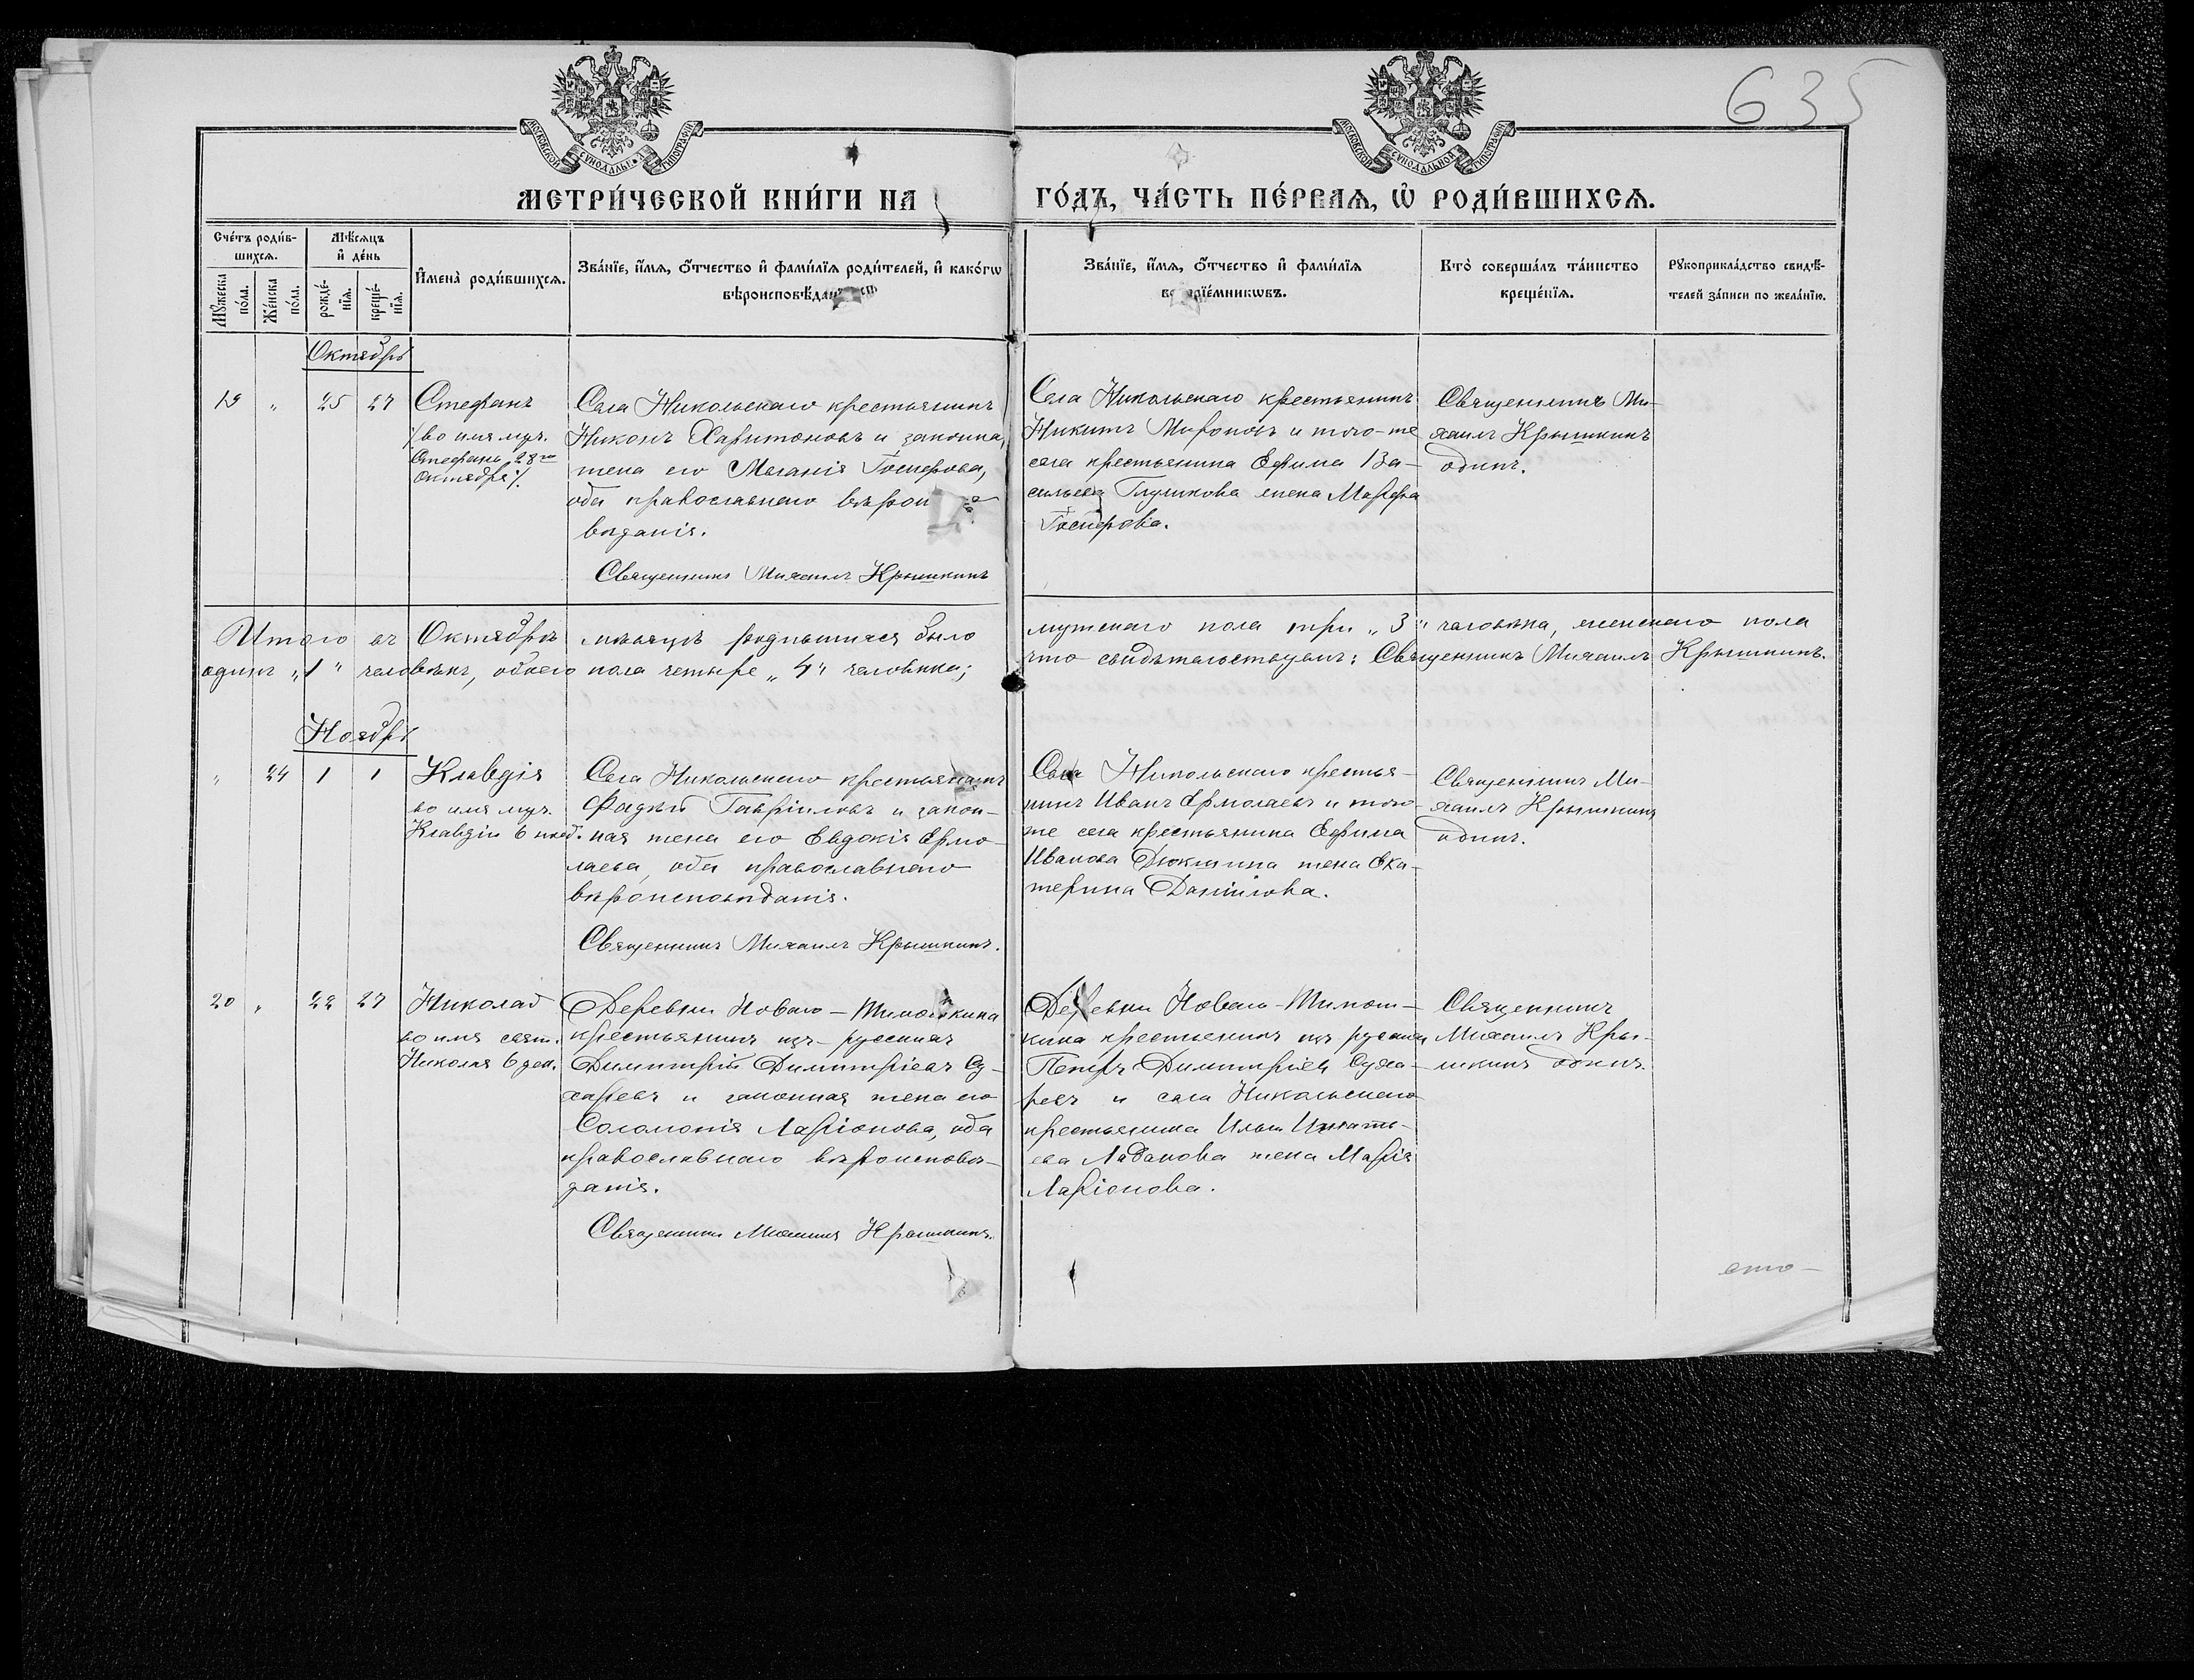 635
МОСКОВСКОЙ СѴНОДАЛЬНОЙ ТИПОГРАФІИ
МОСКОВСКОЙ СѴНОДАЛЬНОЙ ТИПОГРАФІИ
МЕТРИ́ЧЕСКОЙ КНИ́ГИ НА ГО́ДЪ, ЧА́СТЬ ПЕ́РВАѦ, Ѡ҆ РОДИ́ВШИХСѦ.
Сче́тъ роди́в-
шихсѧ.
Мꙋ́жеска по́ла.
Же́нска по́ла.
Мѣ́сѧцъ
и҆ де́нь
рожде́-
нїѧ.
креще́-
нїѧ.
И҆мена̀ роди́вшихсѧ.
Зва́нїе, и҆́мѧ, ѻ҆́тчество и҆ фами́лїѧ роди́телей, и҆ како́гѡ
вѣроисповѣ́данїѧ
Зва́нїе, и҆́мѧ, ѻ҆́тчество и҆ фами́лїѧ
воспрїе́мникѡвъ.
Кто̀ соверша́лъ та́инство
креще́нїѧ.
Рꙋкоприкла́дство свидѣ́-
телей за́писи по жела́нїю.
Октябрь
19 " 25 27 Стефанъ
/во имя муч.
Стефана 28го
октября/.
Села Никольскаго крестьянинъ
Никонъ Харитоновъ и законна,
жена его Меланія Іосифова,
оба православнаго вѣрои
вѣданія.
Священникъ Михаилъ Крышкинъ
Села Никольскаго крестьянинъ
Никита Мироновъ и того-же
села крестьянина Ефима Ва-
сильева Глушкова жена Марфа
Іосифова.
Священникъ Ми-
хаилъ Крышкинъ
одинъ.
Итого въ Октябрѣ мѣсяцѣ родившихся было мужескаго пола три „3" человѣка, женскаго пола
одинъ „1" человѣкъ, обоего пола четыре „4" человѣка; что свидѣтельствуемъ: Священникъ Михаилъ Крышкинъ.
Ноябрь
" 24 1 1 Клавдія
во имя муч.
Клавдіи 6 нояб.
Села Никольскаго крестьянинъ
Фадѣй Гавріиловъ и закон-
ная жена его Евдокія Ермо-
лаева, оба православнаго
вѣроисповѣданія.
Священникъ Михаилъ Крышкинъ.
Села Никольскаго крестья-
нинъ Иванъ Ермолаевъ и того-
же села крестьянина Ефима
Иванова Дюкшина жена Ека-
терина Даніилова.
Священникъ Ми-
хаилъ Крышкинъ
одинъ.
20 " 22 27 Николай
во имя свят.
Николая 6 дек.
Деревни Новаго-Тимошкина
крестьянинъ изъ-русскихъ
Димитрій Димитріевъ Су-
харевъ и законная жена его
Соломонія Ларіонова, оба
православнаго вѣроисповѣ-
данія.
Священникъ Михаилъ Крышкинъ.
Деревни Новаго-Тимош-
кина крестьянинъ изъ русскихъ
Петръ Димитріевъ Суха-
ревъ и села Никольскаго
крестьянина Ильи Игнать-
ева Ладанова жена Марія
Ларіонова.
Священникъ
Михаилъ Кры-
шкинъ одинъ.